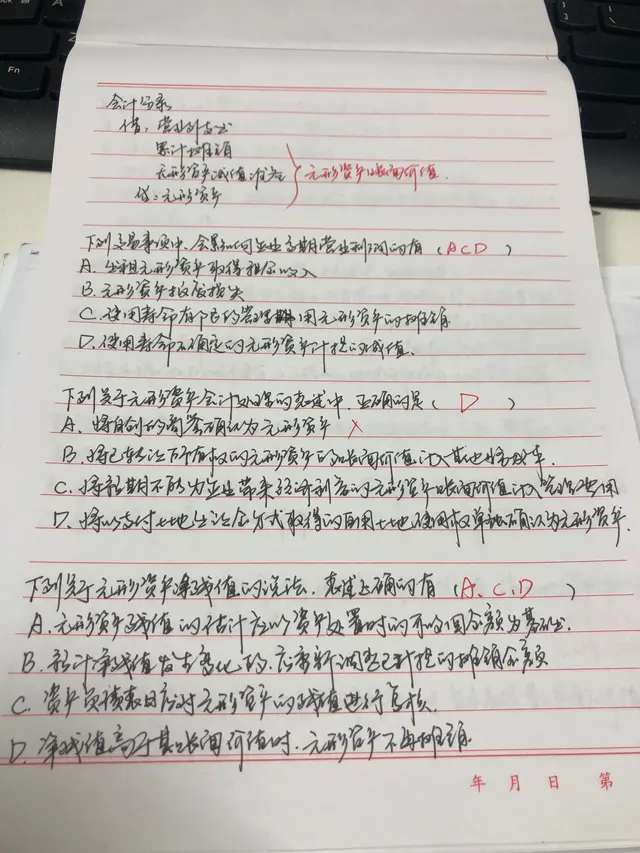 会计分录
借：营业外支出
累计摊销
无形资产减值准备
贷：无形资产
无形资产账面价值.
下列交易事项中，会影响企业当期营业利润的有（ACD）
A. 出租无形资产取得租金收入
B. 无形资产报废损失
C. 使用寿命有限的管理用无形资产的摊销
D. 使用寿命不确定的无形资产计提的减值.
下列关于无形资产会计处理的表述中，正确的是（D）
A. 将自创的商誉确认为无形资产 ×
B. 将已转让所有权的无形资产的账面价值计入其他业务成本.
C. 将预期不能为企业带来经济利益的无形资产账面价值计入管理费用
D. 将以支付土地出让金方式取得的自用土地使用权单独确认为无形资产.
下列关于无形资产净残值的说法，表述正确的有（A、C、D）
A. 无形资产残值的估计应以资产处置时的可收回金额为基础.
B. 预计净残值发生变化的，应重新调整已计提的摊销金额
C. 资产负债表日应对无形资产的残值进行复核.
D. 净残值高于其账面价值时，无形资产不再摊销
年 月 日 第
Fn